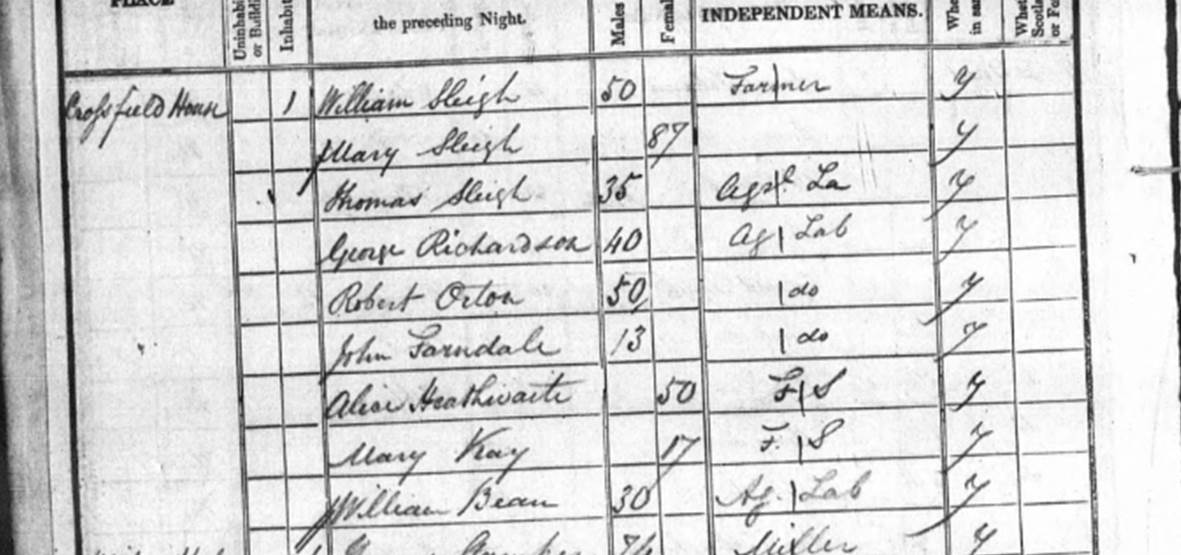 PLACE Uninhabi or Buildi Inhabit the preceding Night. Males Femal INDEPENDENT MEANS. Whe in sam Whet Scotla or Fo
Crossfield House 1 William Sleigh 50 Farmer y
Mary Sleigh 87 y
Thomas Sleigh 35 Agrl La y
George Richardson 40 Ag Lab y
Robert Orton 50 do y
John Farndale 13 do y
Alice Heathwaite 50 F S y
Mary Kay 17 F. S y
William Bean 30 Ag. Lab y
1 Miller y